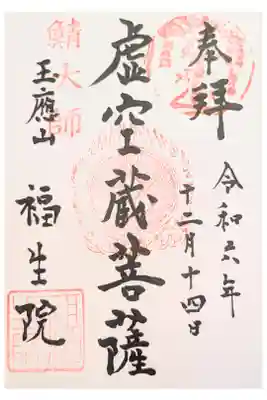 奉拝
令和六年
十二月十四日
虚空蔵菩薩
鯖大師
玉應山
福生院